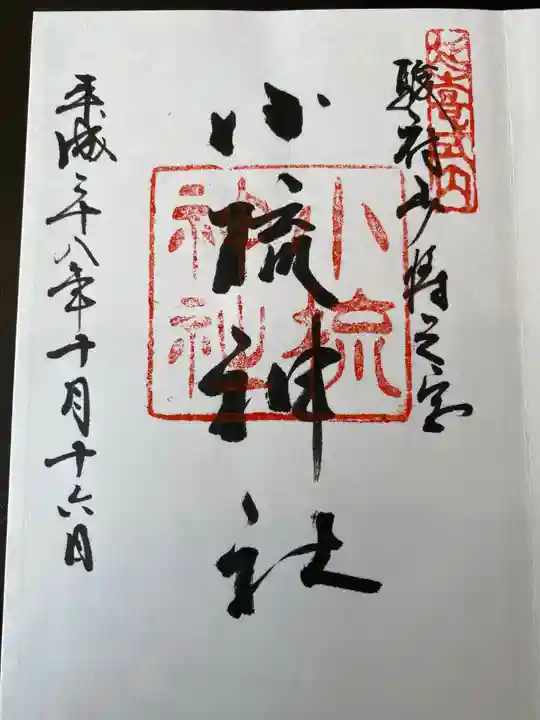 延喜式内
駿府少将之宮
小梳神社
小梳神社
平成二十八年十月十六日